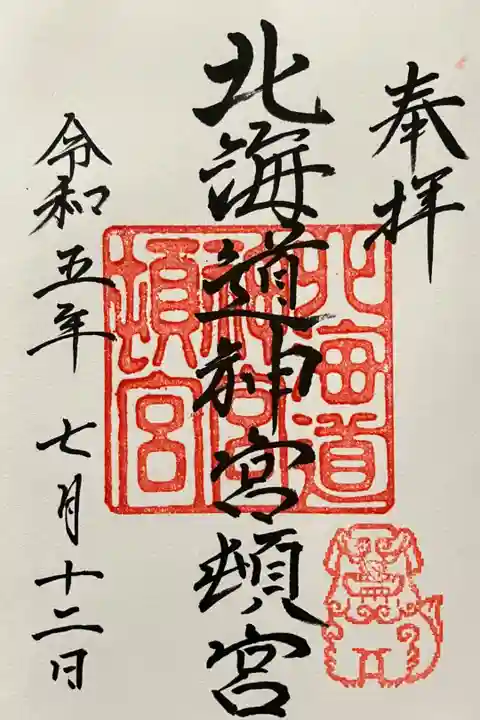 奉拝
北海道神宮頓宮
令和五年 七月十二日
北海道
神宮
頓宮